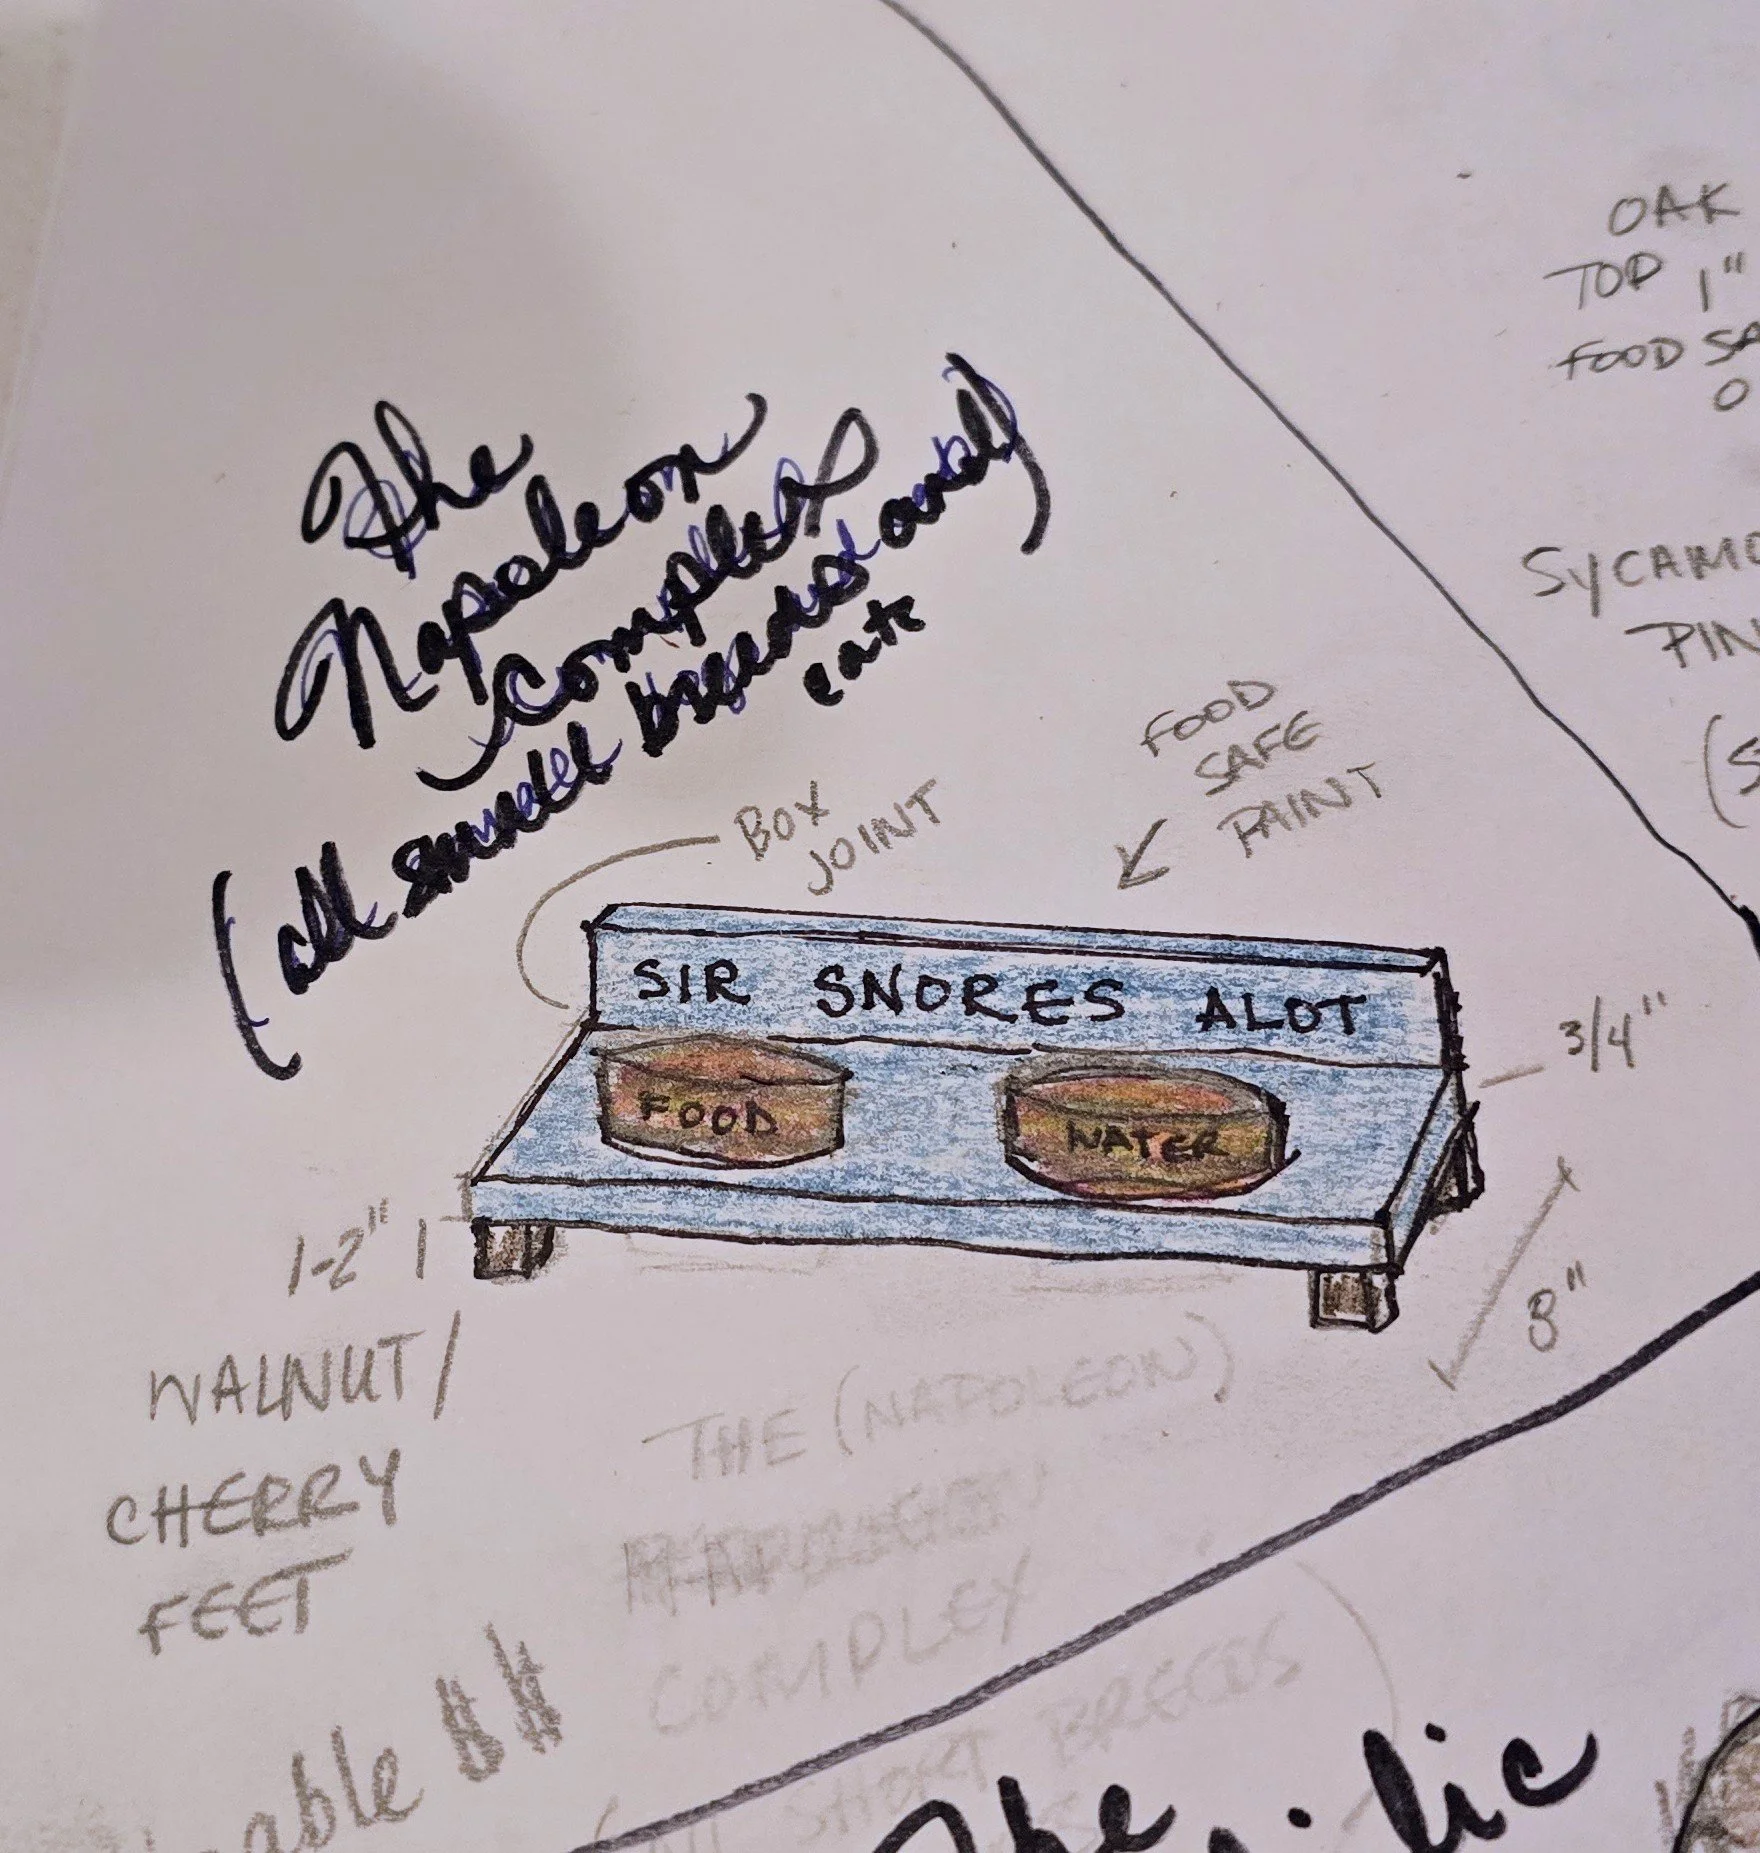 The
Napoleon
Complex
(all small breeds and)
cats
BOX
JOINT
FOOD
SAFE
PAINT
SIR SNORES ALOT
FOOD
WATER
3/4"
8"
1-2"
WALNUT/
CHERRY
FEET
THE (NAPOLEON)
COMPLEX
SHORT BREEDS
OAK
TOP 1"
FOOD SA
O
SYCAMO
PIN
(S
able $$
The
lic